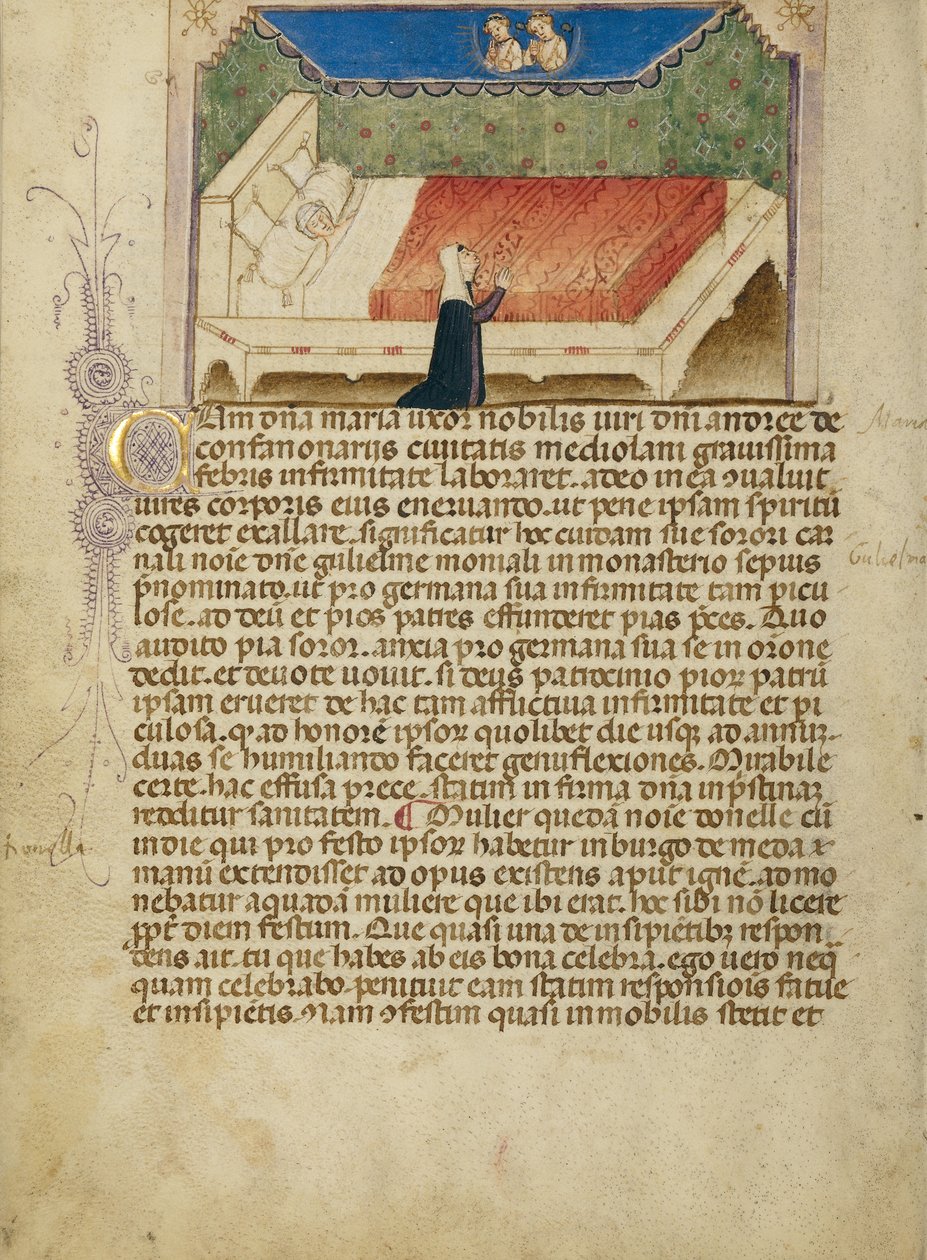 Cum dn̄a maria uxor nobilis uiri dn̄i andree de
confanonarijs ciuitatis mediolani grauissima
febris infirmitate laboraret. adeo in ea ꝯualuit
uires corporis eius eneruando. ut pene ipsam spiritū
cogeret exallare. significatur hoc cuidam sue sorori car
nali noīe dn̄e gulielme moniali in monasterio sepius
p̄nominato. ut pro germana sua infirmitate tam picu
lose. ad deū et pios patres effunderet pias p̄ces. Quo
audito pia soror. anxia pro germana sua se in orōne
dedit. et deuote uouit. si deus patrocinio pioꝝ patrū
ipsam erueret de hac tam afflictiua infirmitate et pi
culosa. ꝙ ad honorē ipsoꝝ quolibet die usqꝫ ad annuꝫ
duas se humiliando faceret genuflexiones. Mirabile
certe. hac effusa prece. statim infirma dn̄a in p̄stinaꝫ
redditur sanitatem. ¶ Mulier quedā noīe donelle cū
in die qui pro festo ipsoꝝ habetur in burgo de meda
manū extendisset ad opus existens apud ignē. admo
nebatur a quadā muliere que ibi erat. hoc sibi nō licere
ꝓpt̄ diem festum. Que quasi una de insipiētibꝫ respon
dens ait. tu que habes ab eis bona celebra. ego uero neq
quam celebrabo. penituit eam statim responsiōis fatue
et insipiētis. Nam ꝯfestim quasi inmobilis stetit et
Maria
Gulielma
donella